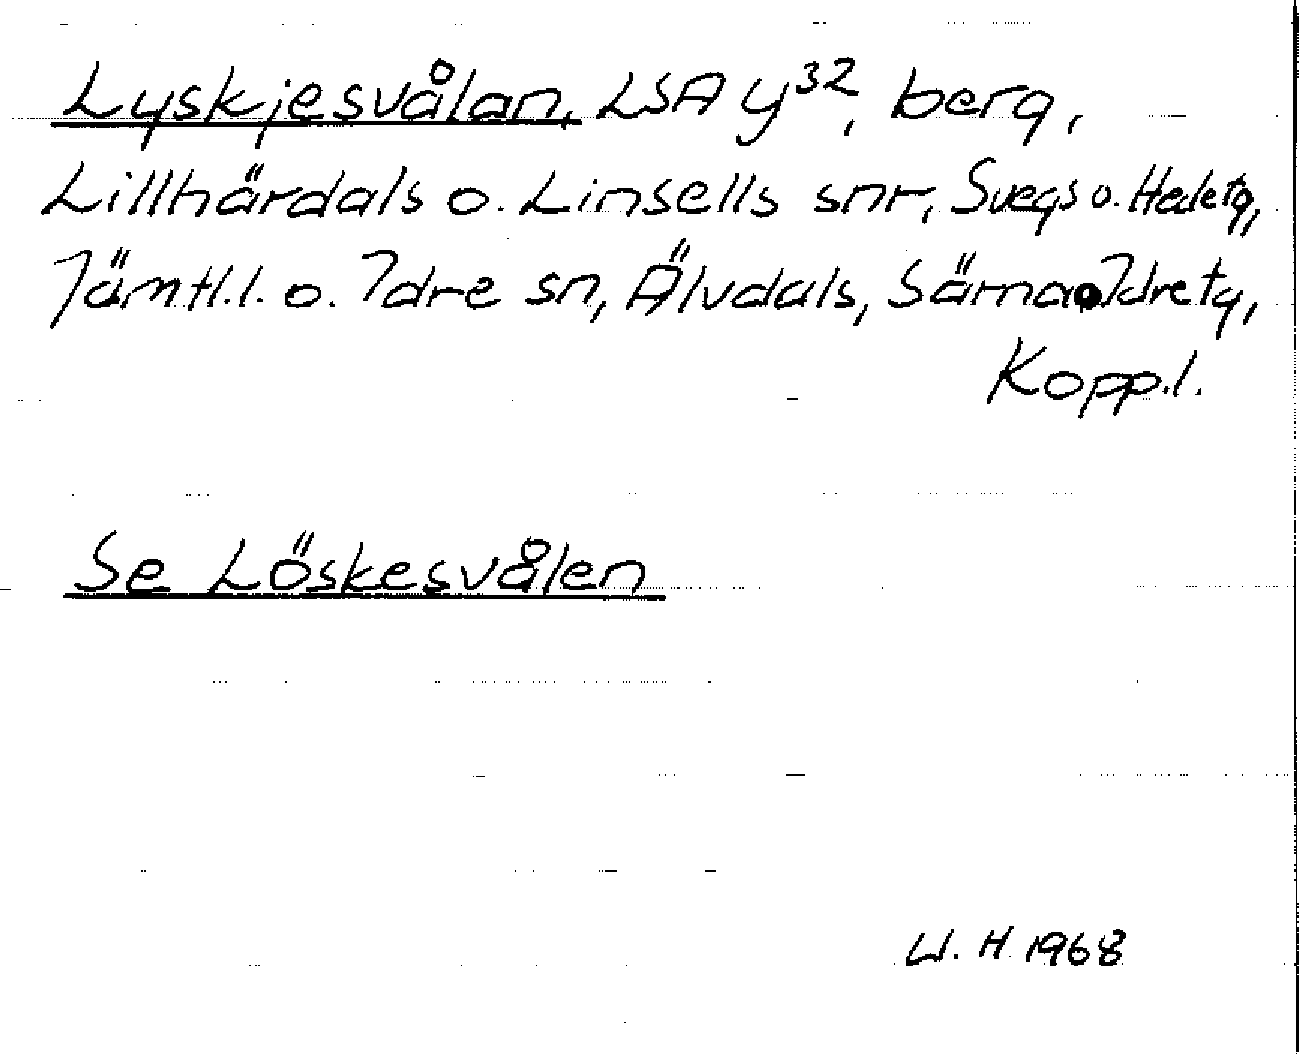 Lyskjesvålan, LSA y³², berg,
Lillhärdals o. Linsells snr, Svegs o. Hede tg,
Jämtl.l. o. Idre sn, Älvdals, Särna o Idre tg,
Kopp.l.
Se Löskesvålen
W. H. 1968